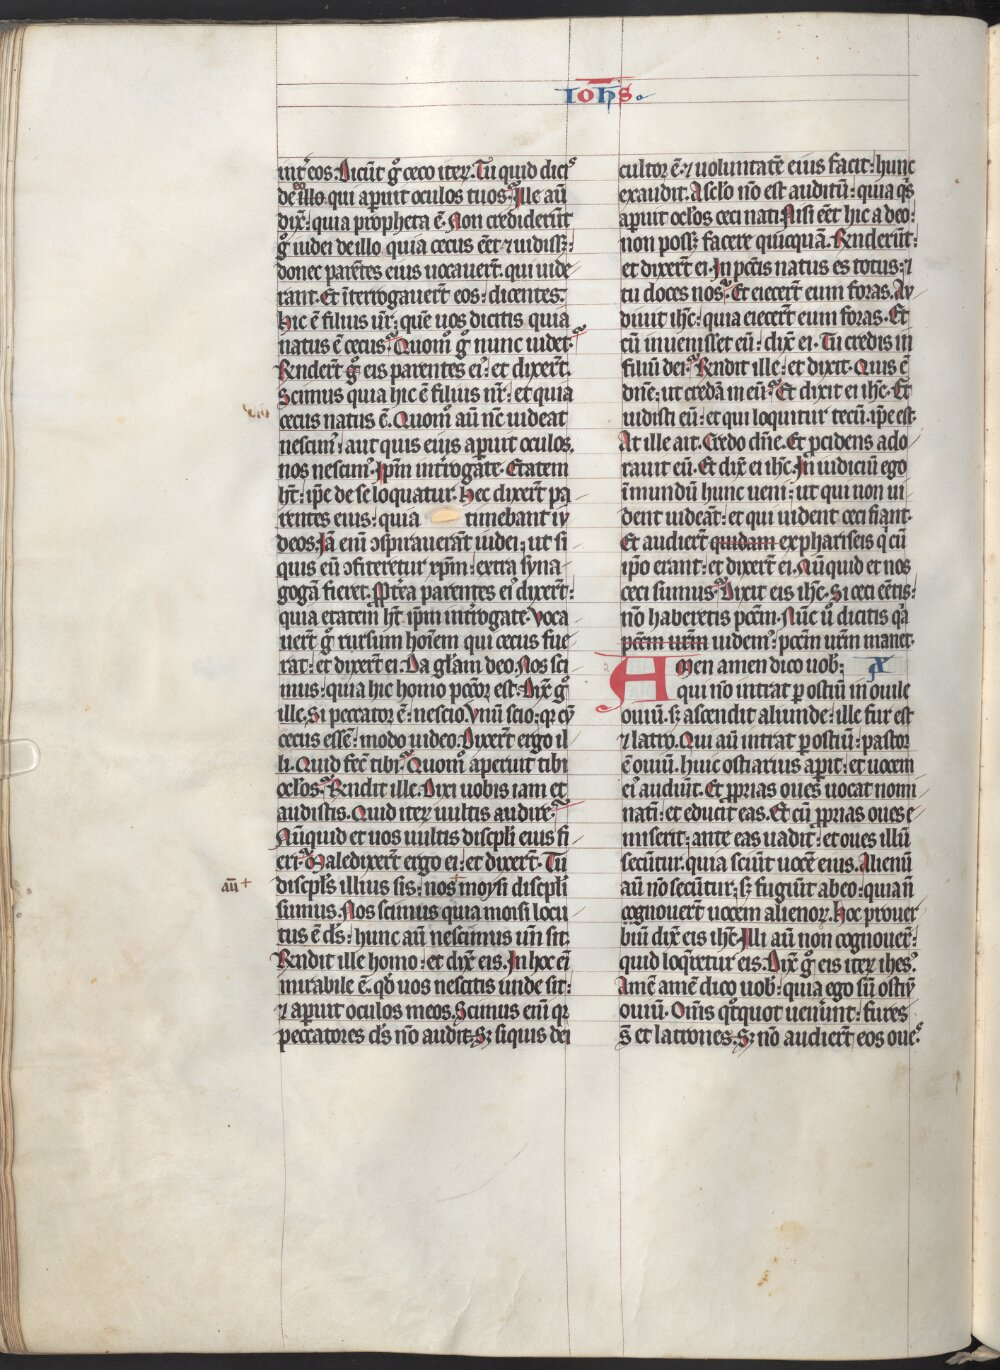 Ioh̄s.
int᷑ eos. Dicūt g̊ ceco iteꝝ. Tu quid dicꝰ
de illo eo qui aperuit oculos tuos? Ille aū
dix̄: quia propheta ē. Non crediderūt
g̊ iudei de illo quia cecus eēt ⁊ uidissꝫ:
donec parētes eius uocauert̄. qui uide
rant. Et īterrogauert̄ eos: dicentes.
Hic ē filius ur̄: quē uos dicitis quia
natus ē cecus? Quom̊ g̊ nunc uidet?
Rn̄dert̄ g̊ eis parentes eiꝰ: et dixert̄.
Scimus quia hic ē filius nr̄: et quia
cecus natus ē. Quom̊ aū nc̄ uideat
nescimꝰ: aut quis eius aperuit oculos.
nos nescimꝰ. Ipm̄ introgate. Etatem
ht̄: ip̄e de se loquatur. Hec dixert̄ pa
rentes eius: quia timebant iu
deos. Iā eim̄ ↄspirauerāt iudei: ut si
quis eū ↄfiteretur xp̄m: extra syna
gogā fieret. Ppt̄ea parentes eiꝰ dixert̄:
quia etatem ht̄ ip̄m int᷑rogate. Voca
uert̄ g̊ rursum hoīem qui cecus fue
rat: et dixert̄ ei. Da gl̄am deo. Nos sci
mus: quia hic homo pcc̄or est. Dix̄ g̊
ille. Si peccator ē: nescio. Vnū scio: qꝛ cū
cecus essē: modo uideo. Dixert̄ ergo il
li. Quid fec̄ tibi? Quom̊ aperuit tibi
oc̄los? Rn̄dit ille. Dixi uobis iam et
audistis. Quid iteꝝ uultis audire?
Nūquid et uos uultis discpl̄i eius fi
eri? Maledixert̄ ergo ei: et dixert̄. Tu
aū +
discpl̄s illius sis: nos + moysi discpl̄i
sumus. Nos scimus quia moisi locu
tus ē ds̄: hunc aū nescimus un̄ sit.
Rn̄dit ille homo: et dix̄ eis. In hoc eī
mirabile ē. qd̄ uos nescitis unde sit:
⁊ aperuit oculos meos. Scimus eim̄ qꝛ
peccatores ds̄ nō audit. Sꝫ siquis dei
cultor ē: ⁊ uoluntatē eius facit: hunc
exaudit. A sc̄lo nō est auditū: quia q̄s
aperuit oc̄los ceci nati. Nisi eēt hic a deo:
non possꝫ facere quicquā. Rn̄derūt:
et dixert̄ ei. In pcc̄is natus es totus: ⁊
tu doces nos? Et eiecert̄ eum foras. Au
diuit ih̄c: quia eiecert̄ eum foras. Et
cū inuenisset eū: dix̄ ei. Tu credis in
filiū dei? Rn̄dit ille: et dixit. Quis ē
dn̄e: ut credā in eū? Et dixit ei ih̄c. Et
uidisti eū: et qui loquitur tecū. ip̄e est.
At ille ait. Credo dn̄e. Et pcidens ado
rauit eū. Et dix̄ ei ih̄c. In iudiciū ego
ī mundū hunc ueni: ut qui non ui
dent uideāt: et qui uident ceci fiant.
Et audiert̄ quidam ex phariseis q̇ cū
ip̄o erant: et dixert̄ ei. Nūquid et nos
ceci sumus? Dixit eis ih̄c. Si ceci eētis:
nō haberetis pcc̄m. Nūc ů dicitis qa
pcc̄m ur̄m uidemꝰ: pcc̄m ur̄m manet.
Amen amen dico uob̄: X
qui nō intrat ꝑ ostiū in ouile
ouiū. sꝫ ascendit aliunde: ille fur est
⁊ latro. Qui aū intrat ꝑ ostiū: pastor
ē ouiū. huic ostiarius apit: et uocem
eiꝰ audiūt. Et ꝓprias oues uocat nomi
natī: et educit eas. Et cū ꝓprias oues e
miserit: ante eas uadit: et oues illū
secūtur. quia sciūt uocē eius. Alienū
aū nō secūtur: sꝫ fugiūt ab eo: quia ñ
cognouert̄ uocem alienoꝝ. Hoc prouer
biū dix̄ eis ih̄c. Illi aū non cognouert̄:
quid loqretur eis. Dix̄ g̊ eis iteꝝ ihesꝰ.
Amē amē dico uob̄: quia ego sū ostiū
ouiū. Om̄s qotquot uenerunt: fures
s̄ et latrones. Sꝫ nō audiert̄ eos ouesꝰ.